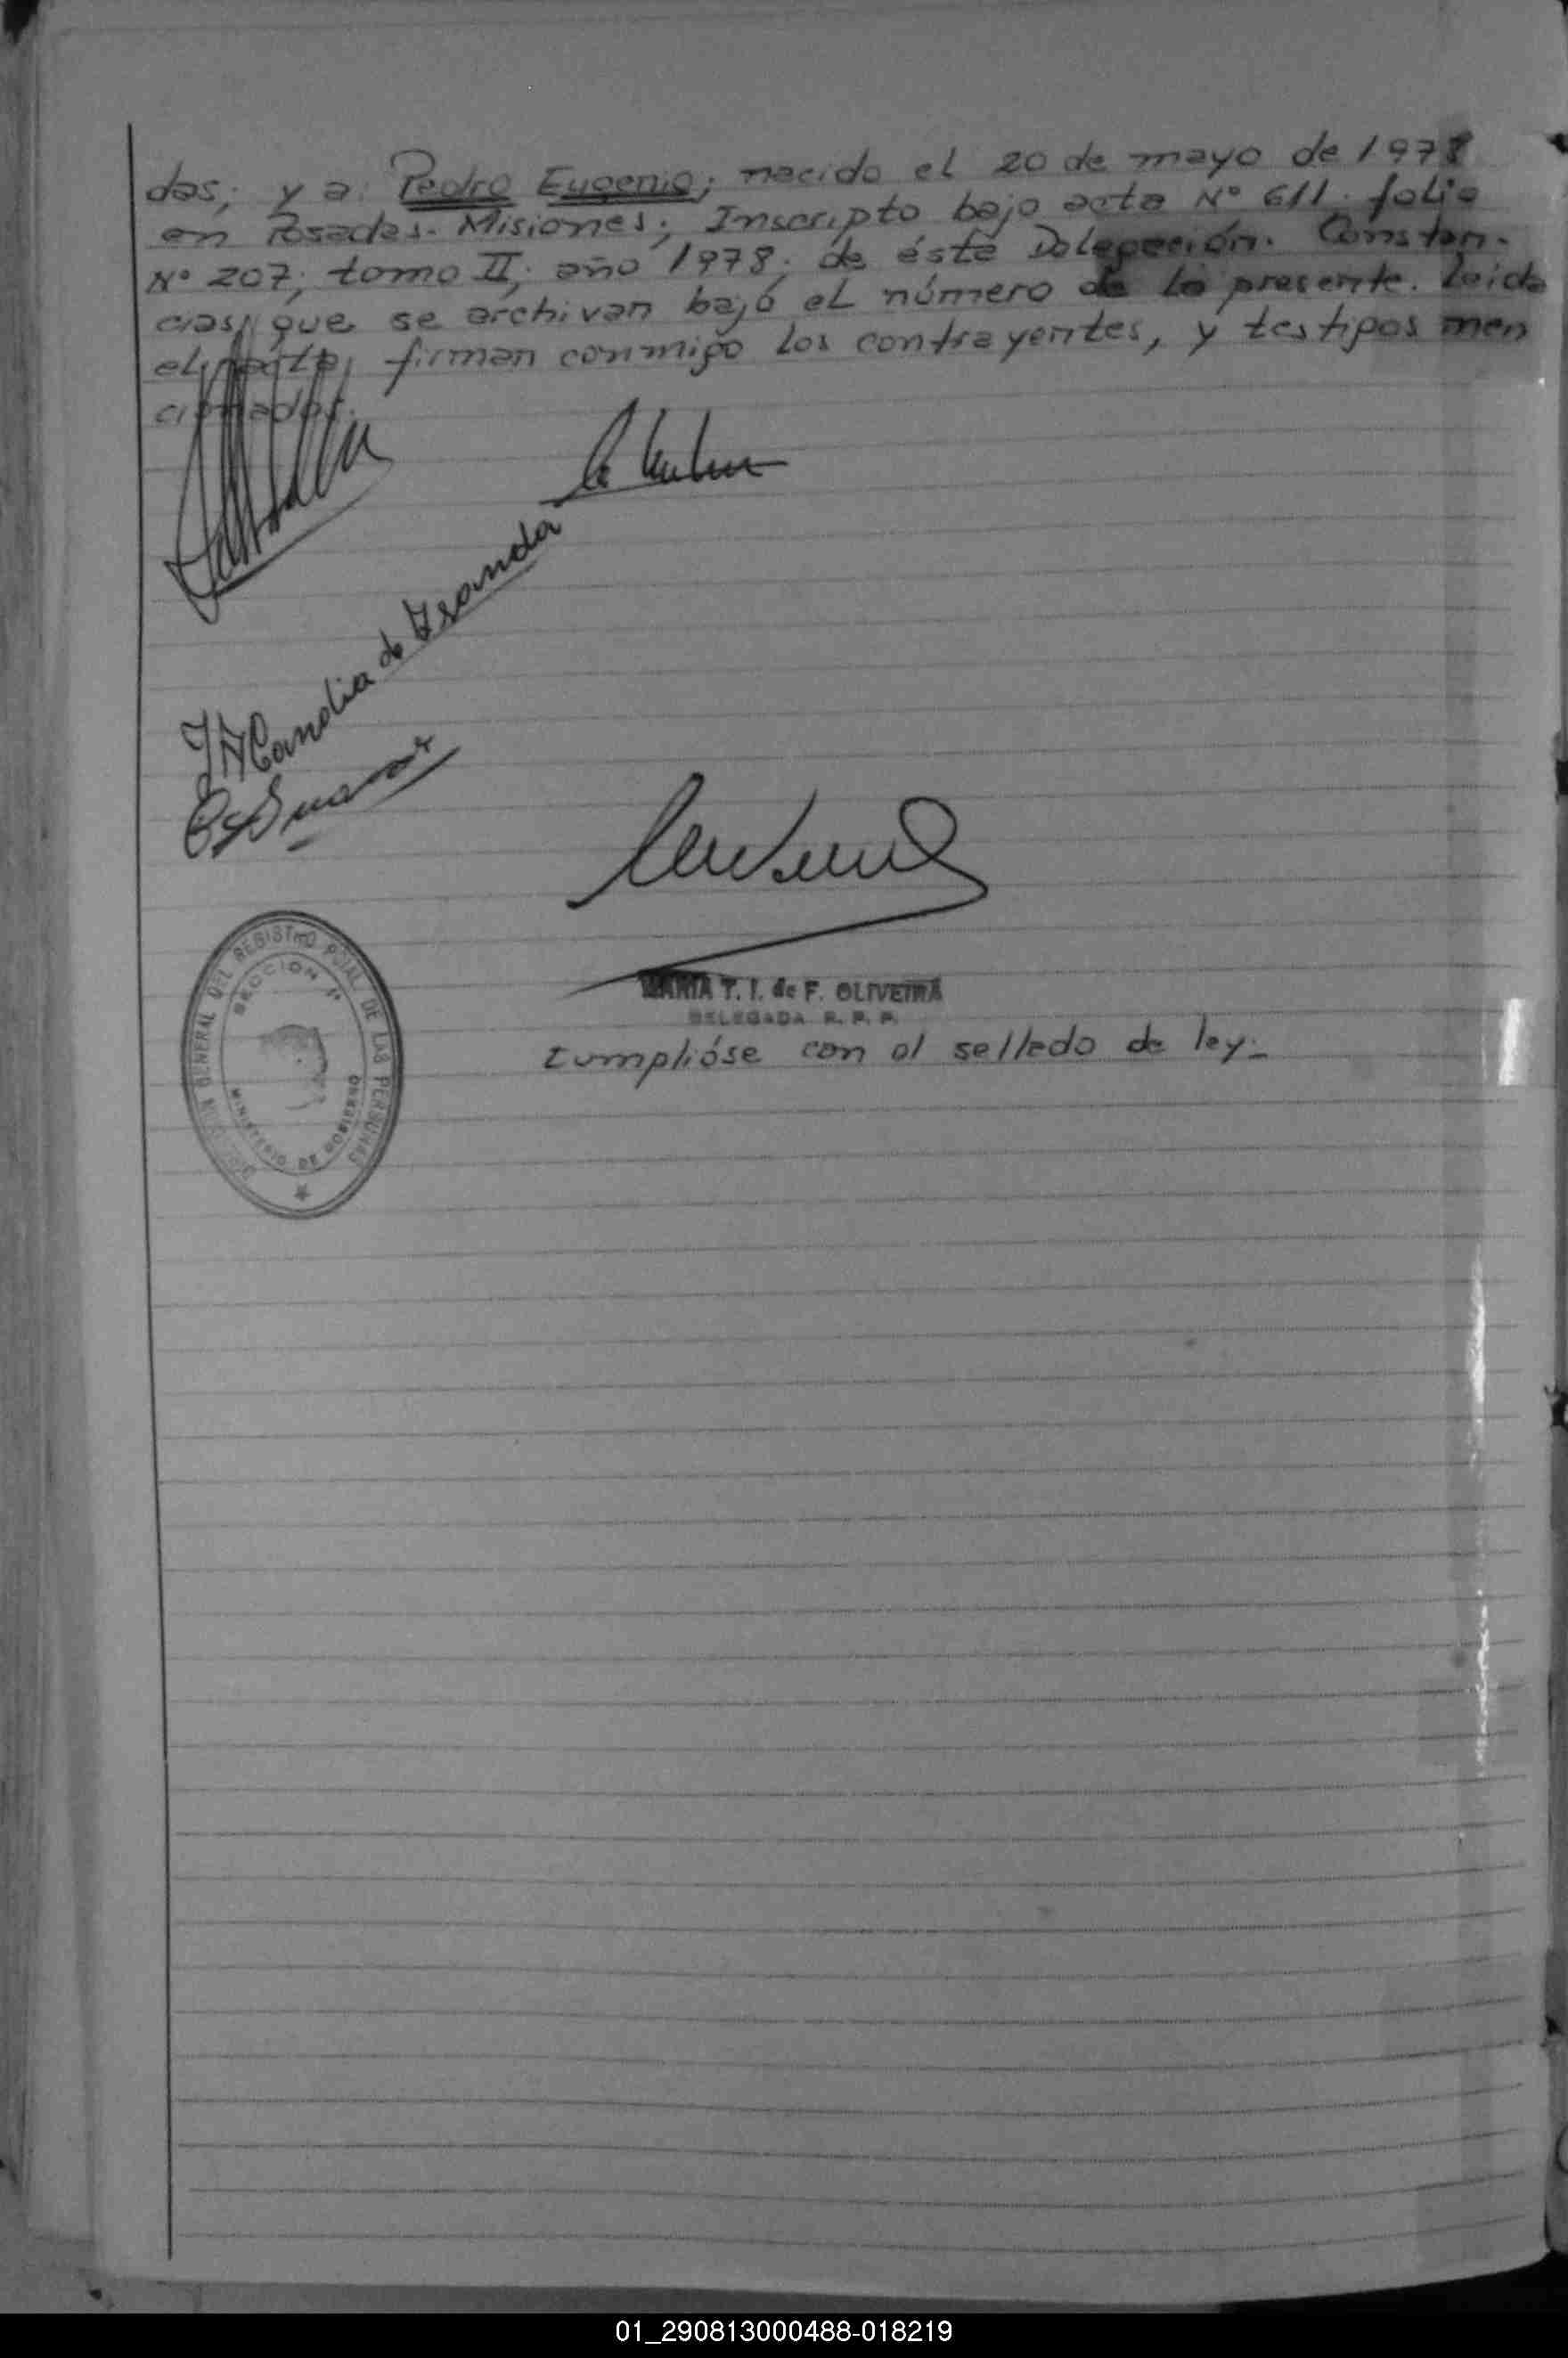 das; y a: Pedro Eugenio; nacido el 20 de mayo de 1978
en Posadas. Misiones; Inscripto bajo acta Nº 611. folio
Nº 207; tomo II; año 1978; de ésta Delegación. Constan-
cias, que se archivan bajo el número de la presente. Leída
el acta, firman conmigo los contrayentes, y testigos men
cionados.
J N Candia de Granda
MARIA T. I. de F. OLIVEIRA
DELEGADA R. P. P.
Cumplióse con el sellado de ley.-
DIRECCION GENERAL DEL REGISTRO PCIAL DE LAS PERSONAS
SECCION 1ª
MINISTERIO DE GOBIERNO
01_290813000488-018219